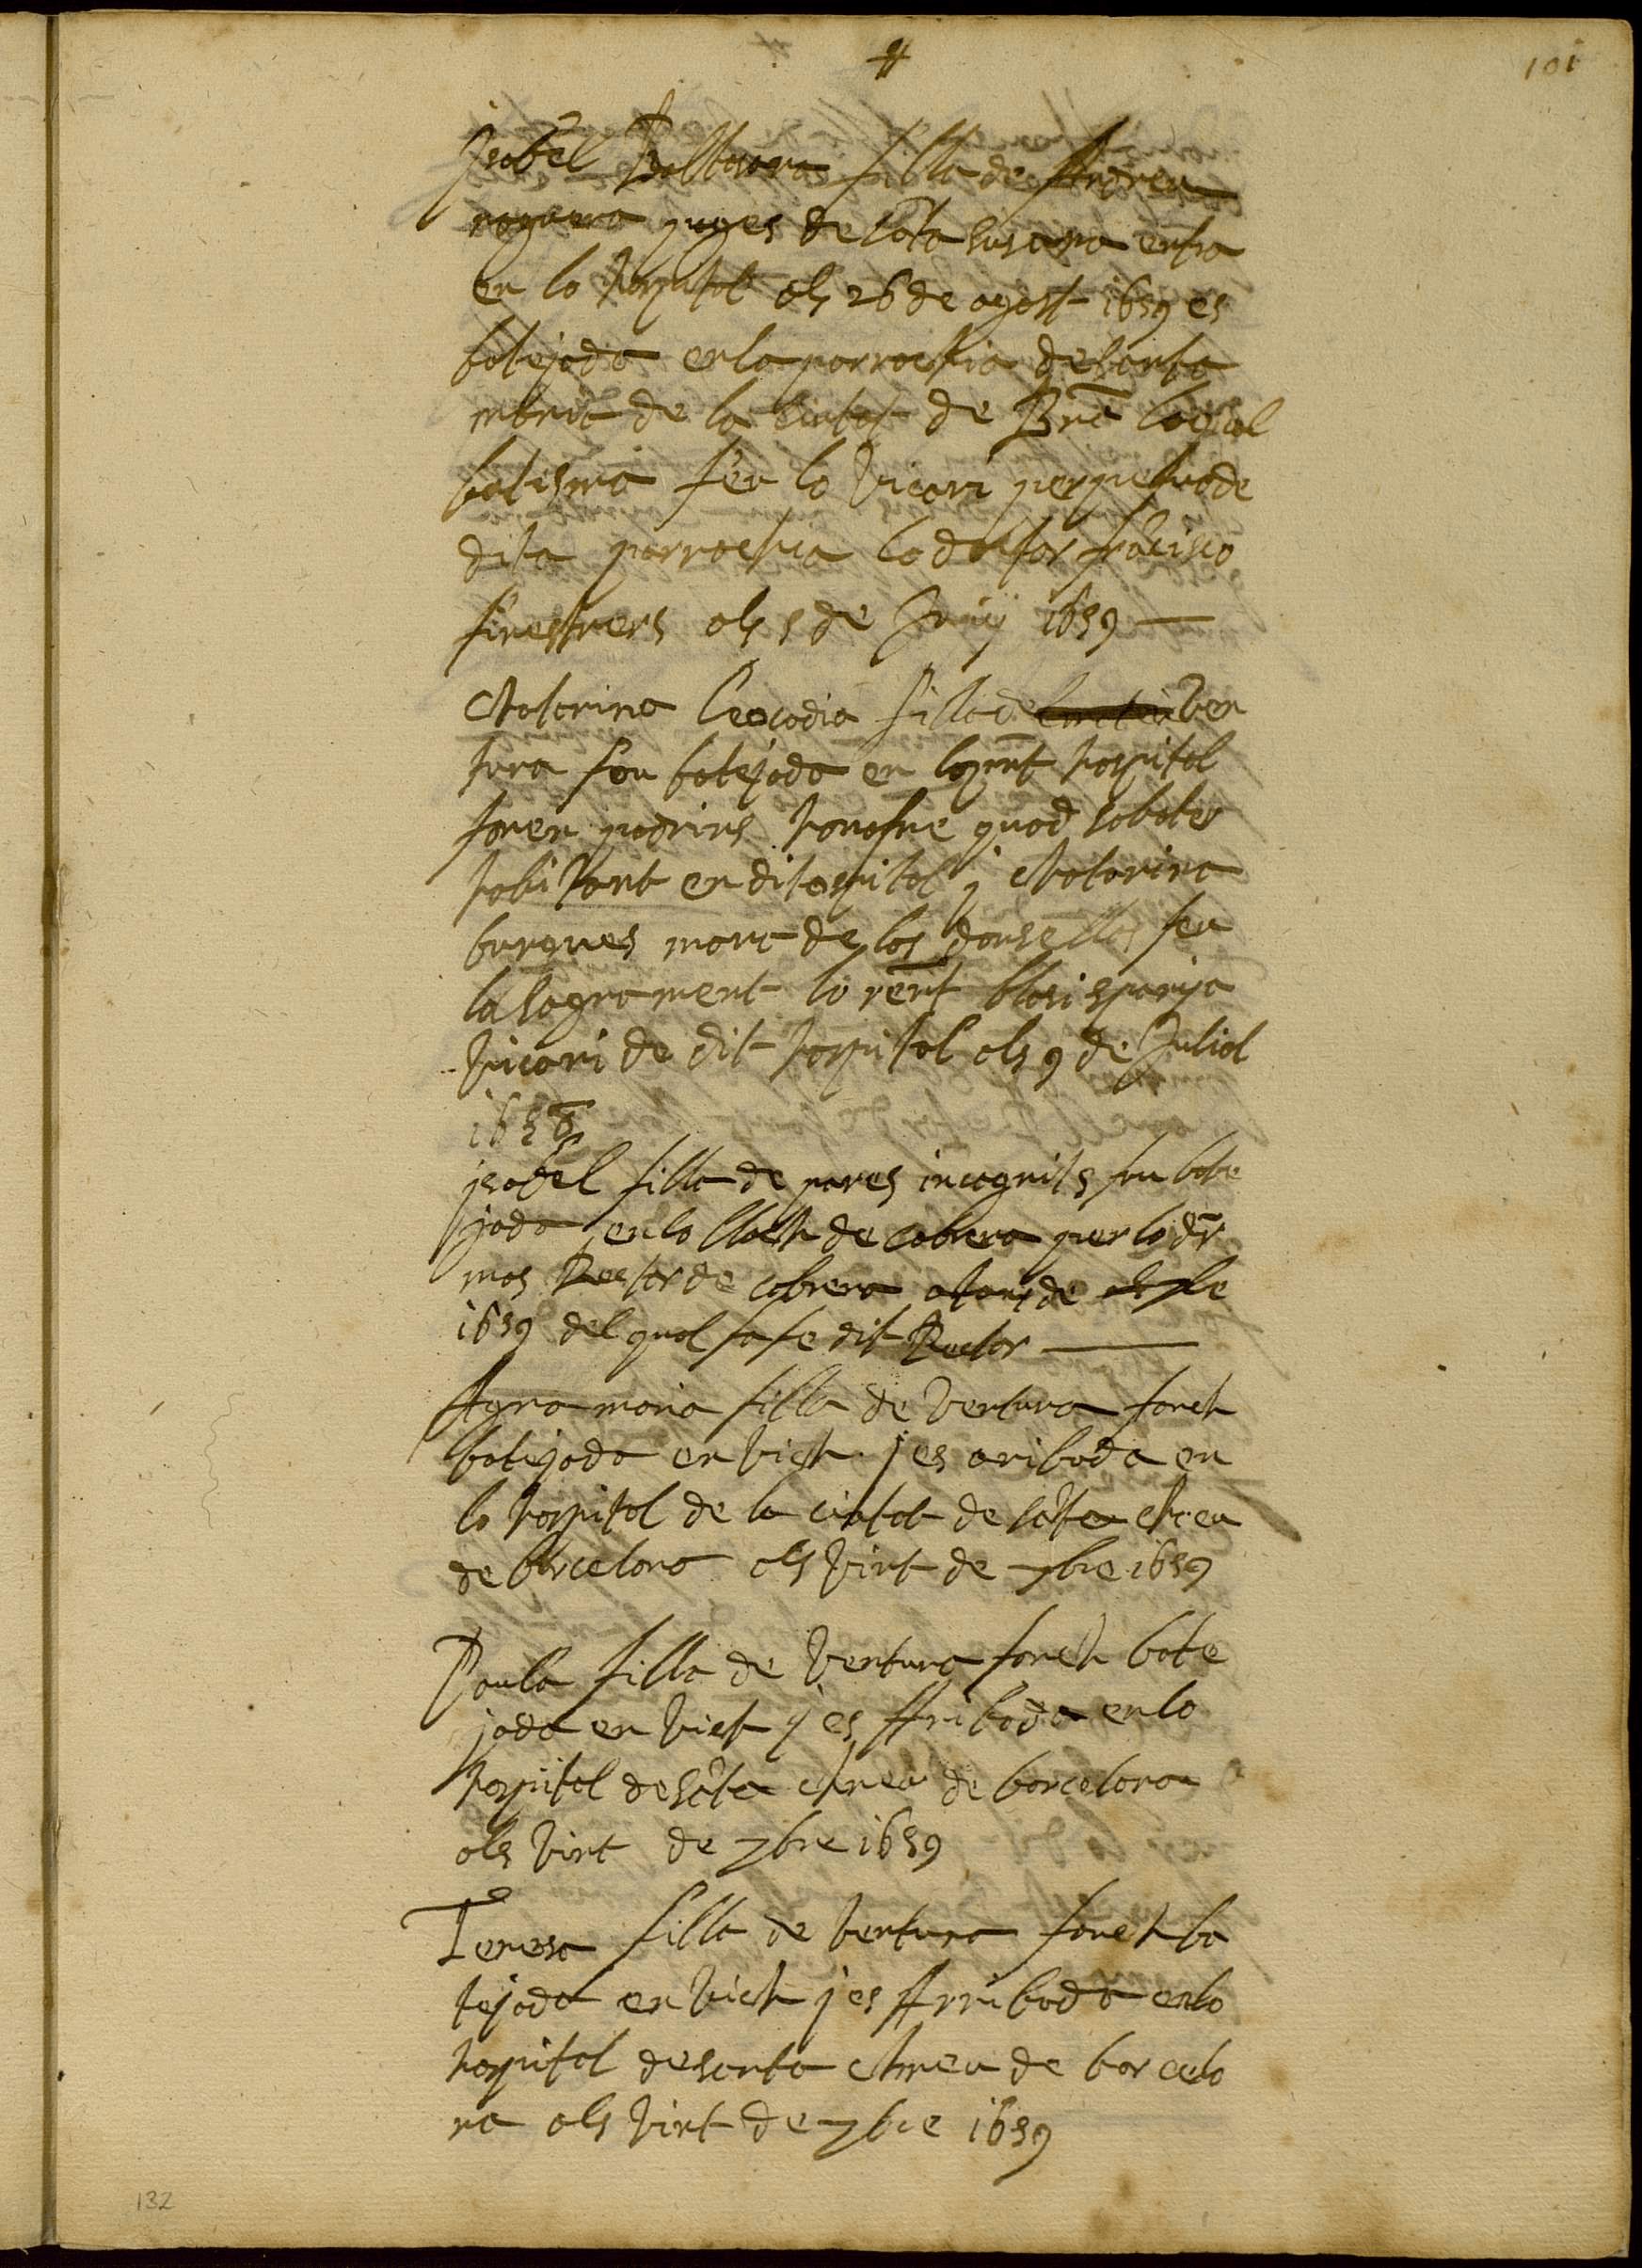 101
Isabel Baltasara filla de Andreu
pages de sāta susana entra
en lo hospital als 26 de agost 1659 es
batejada en la parrochia de santa
de la ciutat de Brā lo qual
batisma feu lo vicari perpetuo de
dita parrochia lo doctor frācisco
finestrers als 5 de Juny 1659 —
Chatarina leocadia filla de ven
tura fou batejada en lo pnt hospital
foren padrins honofre quod sabater
habitant en dit ospital j Chatarina
burgues mare de las donsellas feu
la sagrament lo rent blasi
vicari de dit hospital als 9 de Juliol
1658
jsabel filla de pares incognits fou bate
jada en lo lloch de cabrera per lo dr
mas Rector de cabrera a de
1659 del qual fa fe dit Rector —
Agna maria filla de ventura fonch
batejada en vich j es aribada en
lo hospital de la ciutat de sāta Creu
de barcelona als vint de 7bre 1659
Paula filla de ventura fonch bate
jada en vich y es Arribada en lo
hospital de sāta chreu de barcelona
als vint de 7bre 1659
Teresa filla de ventura fonch ba
tejada en vich j es Arribada en lo
hospital de santa chreu de barcelo
na als vint de 7bre 1659
132